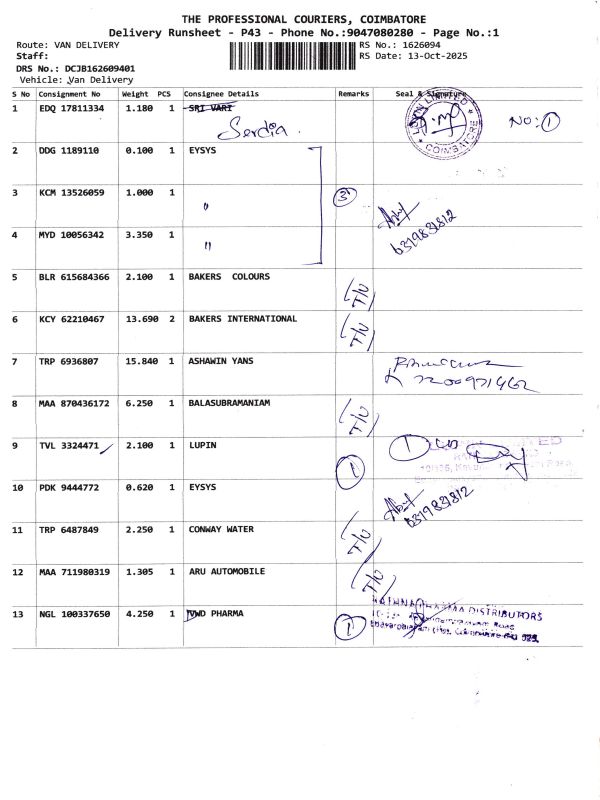 THE PROFESSIONAL COURIERS, COIMBATORE
Delivery Runsheet - P43 - Phone No.:9047080280 - Page No.:1
Route: VAN DELIVERY RS No.: 1626094
Staff: RS Date: 13-Oct-2025
DRS No.: DCJB162609401
Vehicle: Van Delivery
S No Consignment No Weight PCS Consignee Details Remarks Seal & Signature
1 EDQ 17811334 1.180 1 SRI VARI NO: 1
Serdia.
COIMBATORE
2 DDG 1189110 0.100 1 EYSYS
3 KCM 13526059 1.000 1 " 3
6379831812
4 MYD 10056342 3.350 1 "
5 BLR 615684366 2.100 1 BAKERS COLOURS T/U
6 KCY 62210467 13.690 2 BAKERS INTERNATIONAL T/U
7 TRP 6936807 15.840 1 ASHAWIN YANS
8 MAA 870436172 6.250 1 BALASUBRAMANIAM T/U
9 TVL 3324471 2.100 1 LUPIN 1 1
10 PDK 9444772 0.620 1 EYSYS
6379831812
11 TRP 6487849 2.250 1 CONWAY WATER T/U
12 MAA 711980319 1.305 1 ARU AUTOMOBILE T/U
13 NGL 100337650 4.250 1 VWD PHARMA 1 PHARMA DISTRIBUTORS